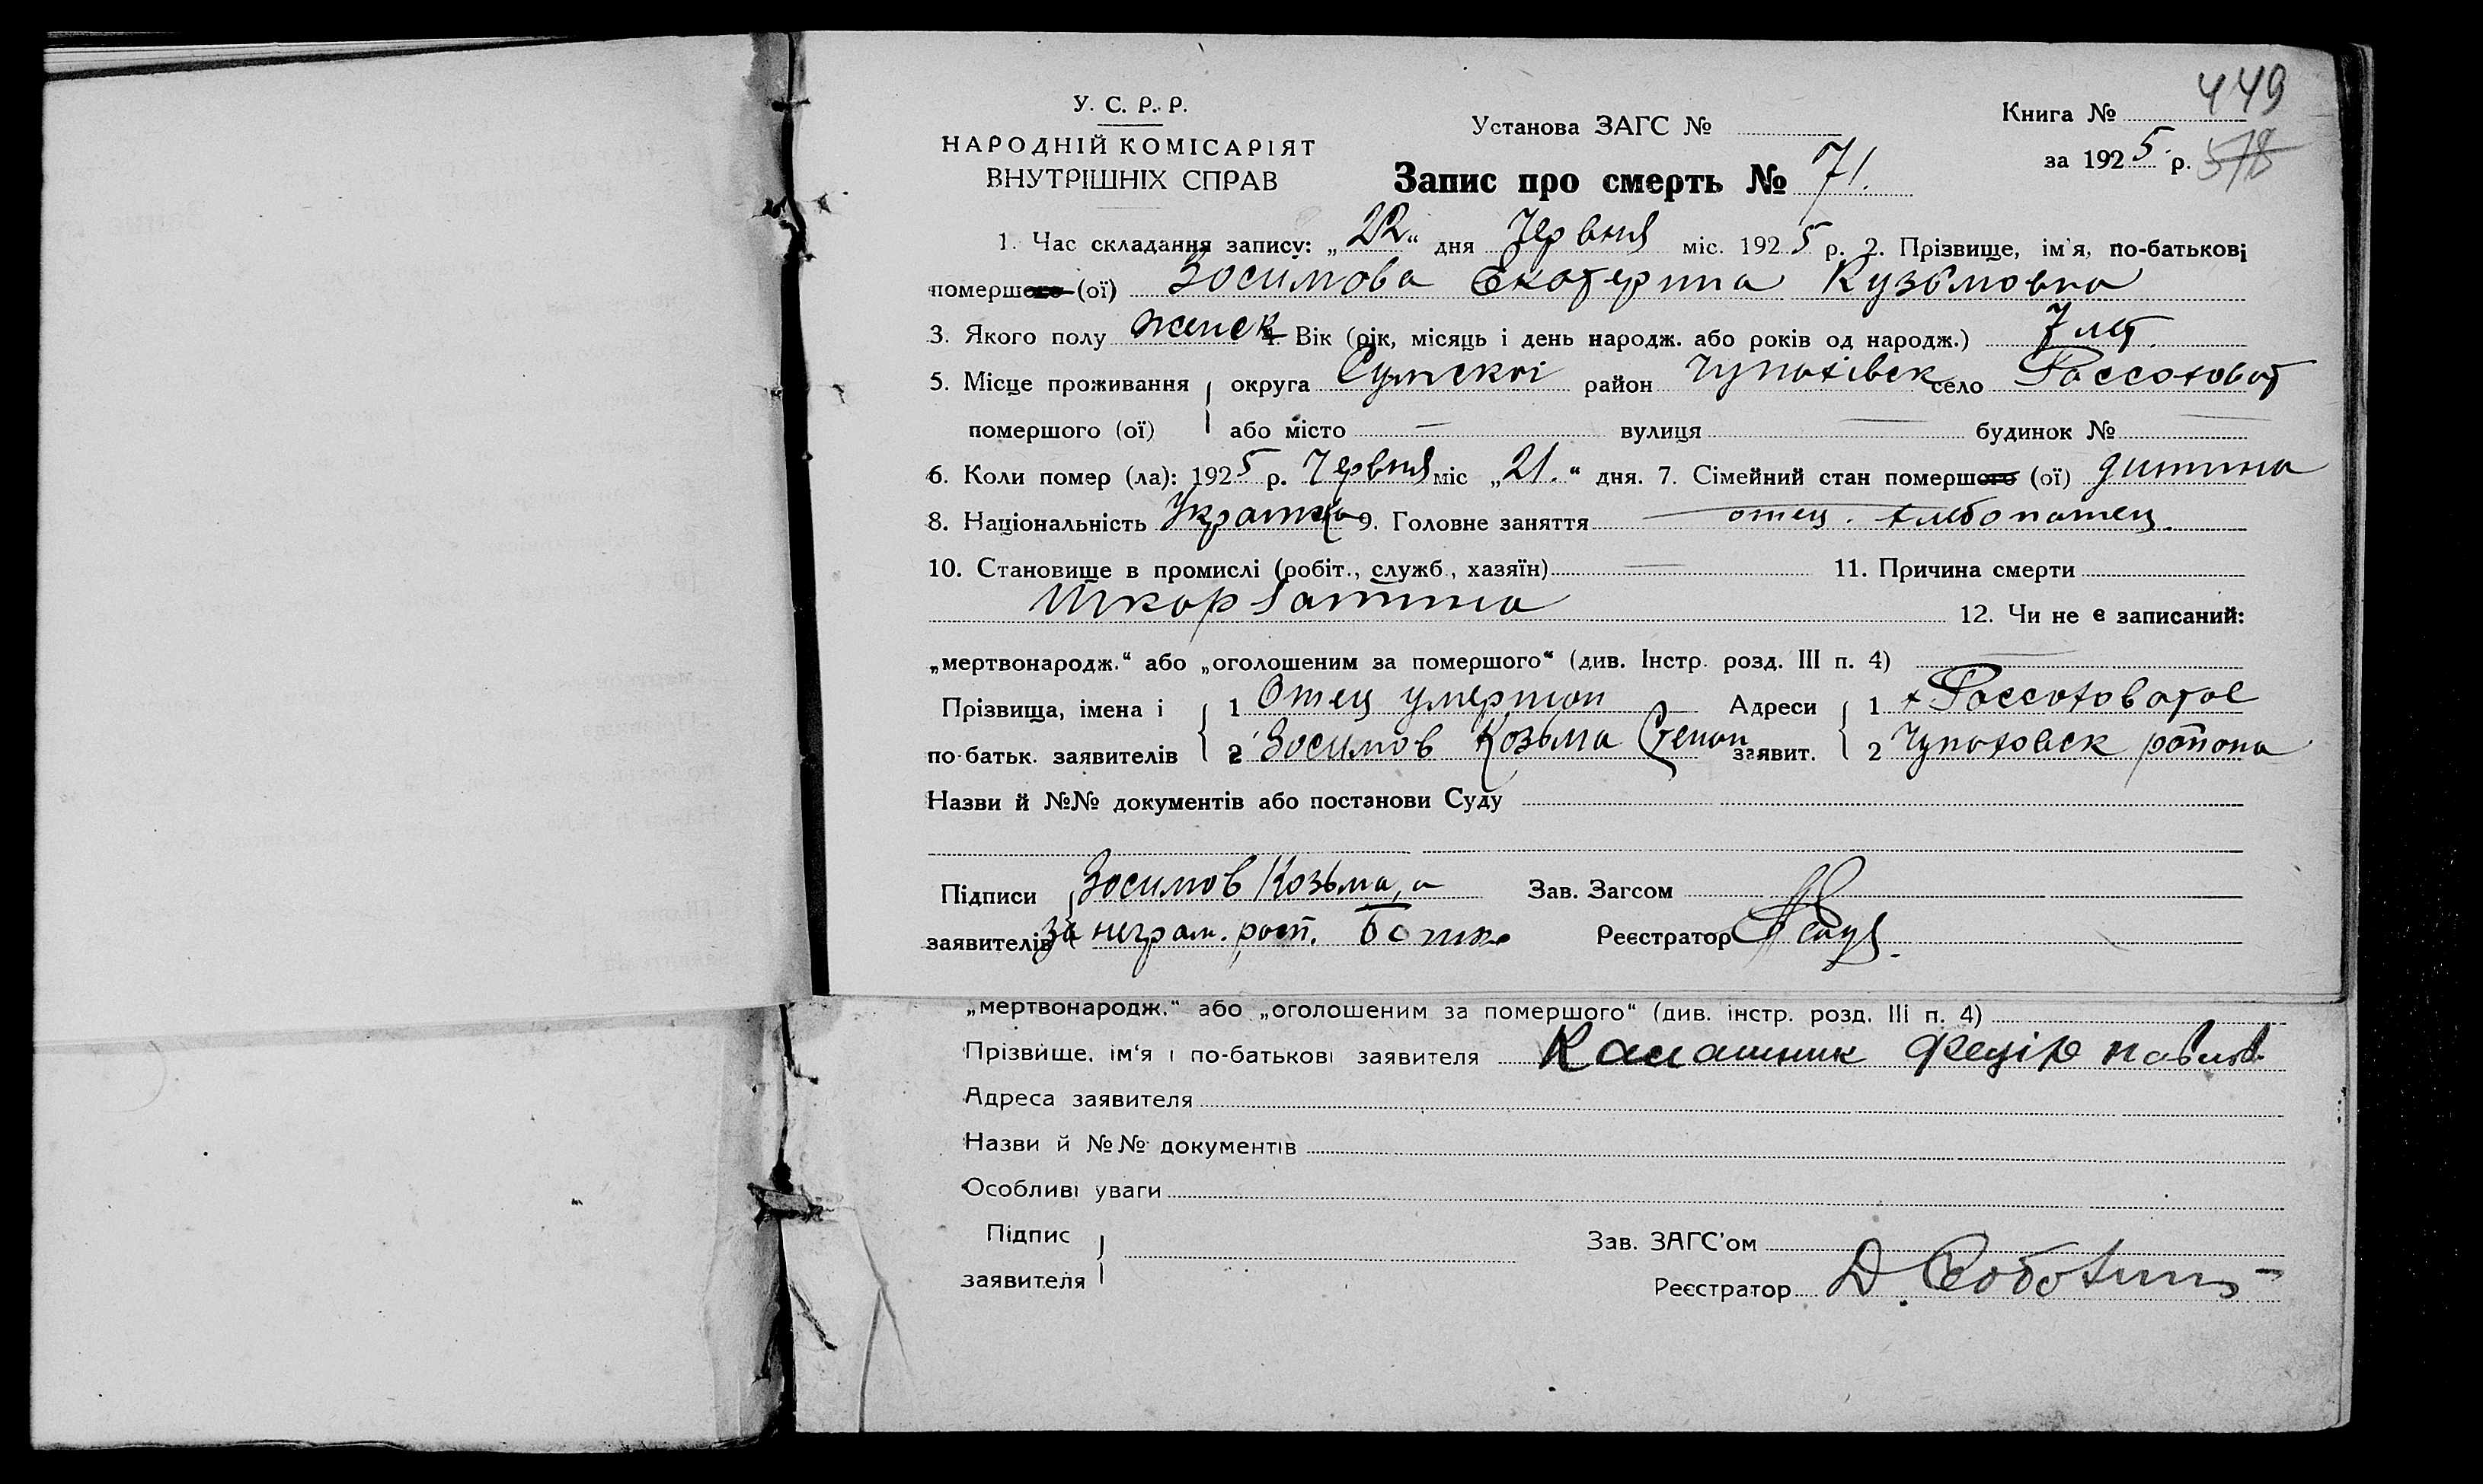 У. С. Р. Р.
НАРОДНІЙ КОМІСАРІЯТ
ВНУТРІШНІХ СПРАВ
Установа ЗАГС №
Книга № 449
за 1925 р. 578
Запис про смерть № 71.
1. Час складання запису: „22“ дня Червня міс. 1925 р. 2. Прізвище, ім'я, по-батькові
помершого (ої) Зосимова Екатерина Кузьмовна
3. Якого полу женск 4. Вік (рік, місяць і день народж. або років од народж.) 7 лет.
5. Місце проживання округа Сумскої район Чупахівск село Рассоховат
помершого (ої) або місто — вулиця — будинок № —
6. Коли помер (ла): 1925 р. Червня міс „21.“ дня. 7. Сімейний стан помершого (ої) дитина
8. Національність Украинка 9. Головне заняття отец. хлебопашец.
10. Становище в промислі (робіт., служб., хазяїн) — 11. Причина смерти
Шкарлатина
12. Чи не є записаний:
„мертвонародж.“ або „оголошеним за помершого“ (див. Інстр. розд. III п. 4) —
Прізвища, імена і 1 Отец умершой Адреси 1 х Рассоховатое
по-батьк. заявителів 2 Зосимов Козьма Семон заявит. 2 Чупаховск района
Назви й №№ документів або постанови Суду
Підписи Зосимов Козьма, а Зав. Загсом
заявителів за неграм. расп. Реєстратор
„мертвонародж.“ або „оголошеним за помершого“ (див. інстр. розд. III п. 4)
Прізвище, ім'я і по-батькові заявителя Калашник Федір Павлов.
Адреса заявителя
Назви й №№ документів
Особливі уваги
Підпис
заявителя
Зав. ЗАГС'ом
Реєстратор Д.